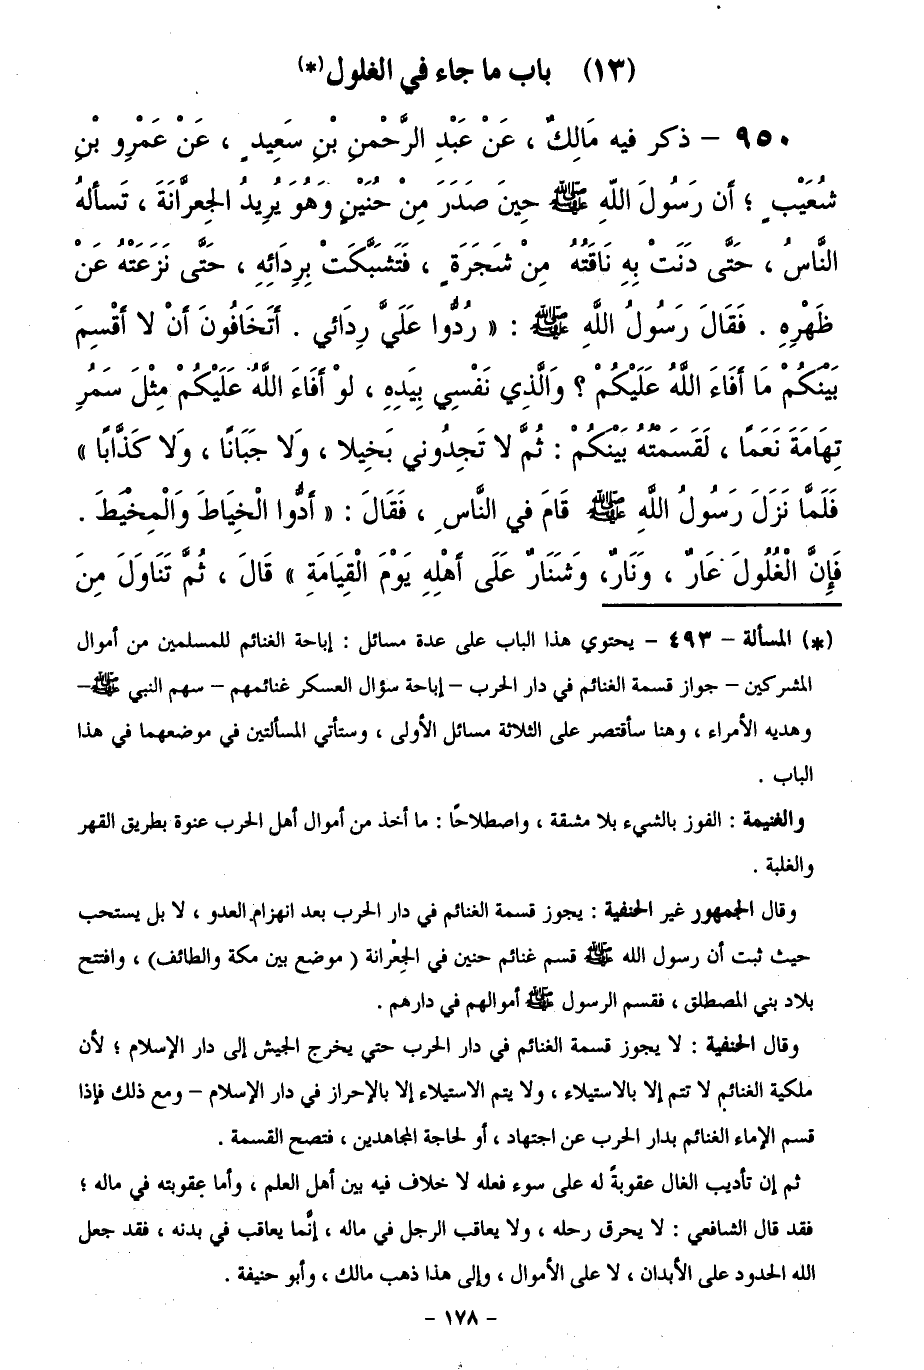 (١٣) باب ما جاء في الغلول(*)
٩٥٠ – ذكر فيه مَالِكٌ ، عَنْ عَبْدِ الرَّحْمنِ بْنِ سَعِيدٍ ، عَنْ عَمْرِو بْنِ
شُعَيْبٍ ؛ أن رَسُولَ اللّهِ ﷺ حِينَ صَدَرَ مِنْ حُنَيْنٍ وَهُوَ يُرِيدُ الجِعرَّانَةَ ، تَسألهُ
النَّاسُ ، حَتَّى دَنَتْ بِهِ نَاقَتُهُ مِنْ شَجَرَةٍ ، فَتَشَبَّكَتْ بِردَائِهِ ، حَتَّى نَزَعَتْهُ عَنْ
ظَهْرِهِ . فَقَالَ رَسُولُ اللَّهِ ﷺ : « رُدُّوا عَلَيَّ رِدَائي . أَتَخَافُونَ أَنْ لا أَقْسِمَ
بَيْنَكُمْ مَا أَفَاءَ اللَّهُ عَلَيْكُمْ ؟ وَالَّذِي نَفْسِي بِيَدِهِ ، لوْ أَفَاءَ اللَّهُ عَلَيْكُمْ مِثْلَ سَمُرِ
تِهَامَةَ نَعَمًا ، لَقَسَمْتُهُ بَيْنَكُمْ : ثُمَّ لا تَجِدُوني بَخِيلا ، وَلا جَبَانًا ، وَلا كَذَّابًا »
فَلَمَّا نَزَلَ رَسُولُ اللَّهِ ﷺ قَامَ في النَّاسِ ، فَقَالَ : « أَدُّوا الْخِيَاطَ وَالْمِخْيَطَ .
فَإِنَّ الْغُلُولَ عَارٌ ، وَنَارٌ، وَشَنَارٌ عَلَى أَهْلِهِ يَوْمَ الْقِيَامَةِ » قَالَ ، ثُمَّ تَنَاوَلَ مِنَ
(*) المسألة – ٤٩٣ – يحتوي هذا الباب على عدة مسائل : إباحة الغنائم للمسلمين من أموال
المشركين – جواز قسمة الغنائم في دار الحرب – إباحة سؤال العسكر غنائمهم – سهم النبي ﷺ–
وهديه الأمراء ، وهنا سأقتصر على الثلاثة مسائل الأولى ، وستأتي المسألتين في موضعهما في هذا
الباب .
والغنيمة : الفوز بالشيء بلا مشقة ، واصطلاحًا : ما أخذ من أموال أهل الحرب عنوة بطريق القهر
والغلبة .
وقال الجمهور غير الحنفية : يجوز قسمة الغنائم في دار الحرب بعد انهزام العدو ، لا بل يستحب
حيث ثبت أن رسول الله ﷺ قسم غنائم حنين في الجعْرانة ( موضع بين مكة والطائف) ، وافتتح
بلاد بني المصطلق ، فقسم الرسول ﷺ أموالهم في دارهم .
وقال الحنفية : لا يجوز قسمة الغنائم في دار الحرب حتي يخرج الجيش إلى دار الإسلام ؛ لأن
ملكية الغنائم لا تتم إلا بالاستيلاء ، ولا يتم الاستيلاء إلا بالإحراز في دار الإسلام – ومع ذلك فإذا
قسم الإماء الغنائم بدار الحرب عن اجتهاد ، أو لحاجة المجاهدين ، فتصح القسمة .
ثم إن تأديب الغال عقوبةً له على سوء فعله لا خلاف فيه بين أهل العلم ، وأما عقوبته في ماله ؛
فقد قال الشافعي : لا يحرق رحله ، ولا يعاقب الرجل في ماله ، إنَّما يعاقب في بدنه ، فقد جعل
الله الحدود على الأبدان ، لا على الأموال ، وإلى هذا ذهب مالك ، وأبو حنيفة .
– ١٧٨ –